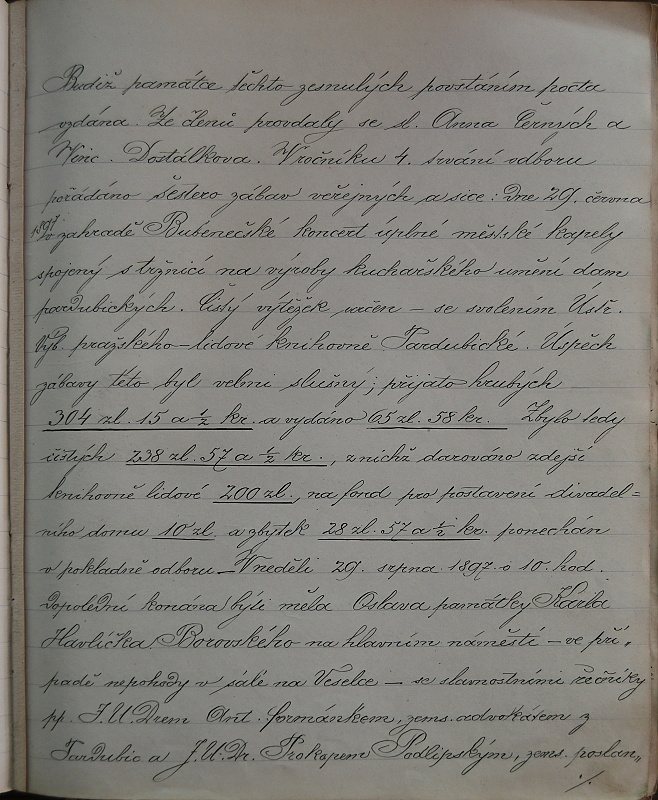 Budiž památce těchto zesnulých povstáním pocta
vzdána. Ze členů provdaly se sl. Anna Černých a
Vinc. Dostálkova. V ročníku 4. trvání odboru
pořádáno šestero zábav veřejných a sice: Dne 29. června
1897 v zahradě Bubenečské koncert úplné městské kapely
spojený s tržnicí na výroby kuchařského umění dam
pardubických. Čistý výtěžek určen – se svolením Ústř.
Výb. pražského – lidové knihovně Pardubické. Úspěch
zábavy této byl velmi slušný; přijato hrubých
304 zl. 15 a ½ kr. a vydáno 65 zl. 58 kr. Zbylo tedy
čistých 238 zl. 57 a ½ kr., z nichž darováno zdejší
knihovně lidové 200 zl., na fond pro postavení divadel=
ního domu 10 zl. a zbytek 28 zl. 57 a ½ kr. ponechán
v pokladně odboru – V neděli 29. srpna 1897 o 10. hod.
dopolední konána býti měla Oslava památky Karla
Havlíčka Borovského na hlavním náměstí – ve pří„
padě nepohody v sále na Veselce – se slavnostními řečníky:
pp. J.U.Drem Ant. Formánkem, zems. advokátem z
Pardubic a J.U.Dr. Prokopem Podlipským, zems. poslan„
./.